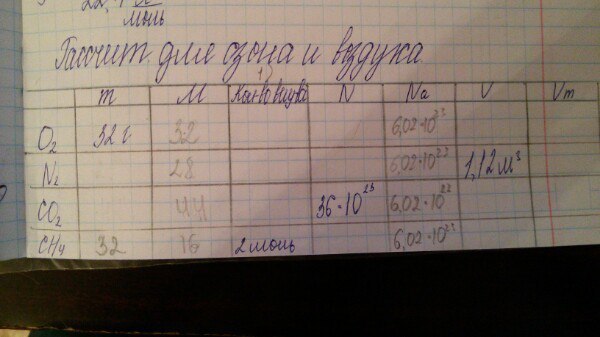 22,4
моль
Рассчет для озона и воздука
m M Кол-во вещ-ва N Na V Vm
O₂ 32 г 32 6,02·10²³
N₂ 28 6,02·10²³ 1,12 м³
CO₂ 44 36·10²³ 6,02·10²³
CH₄ 32 16 2 моль 6,02·10²³